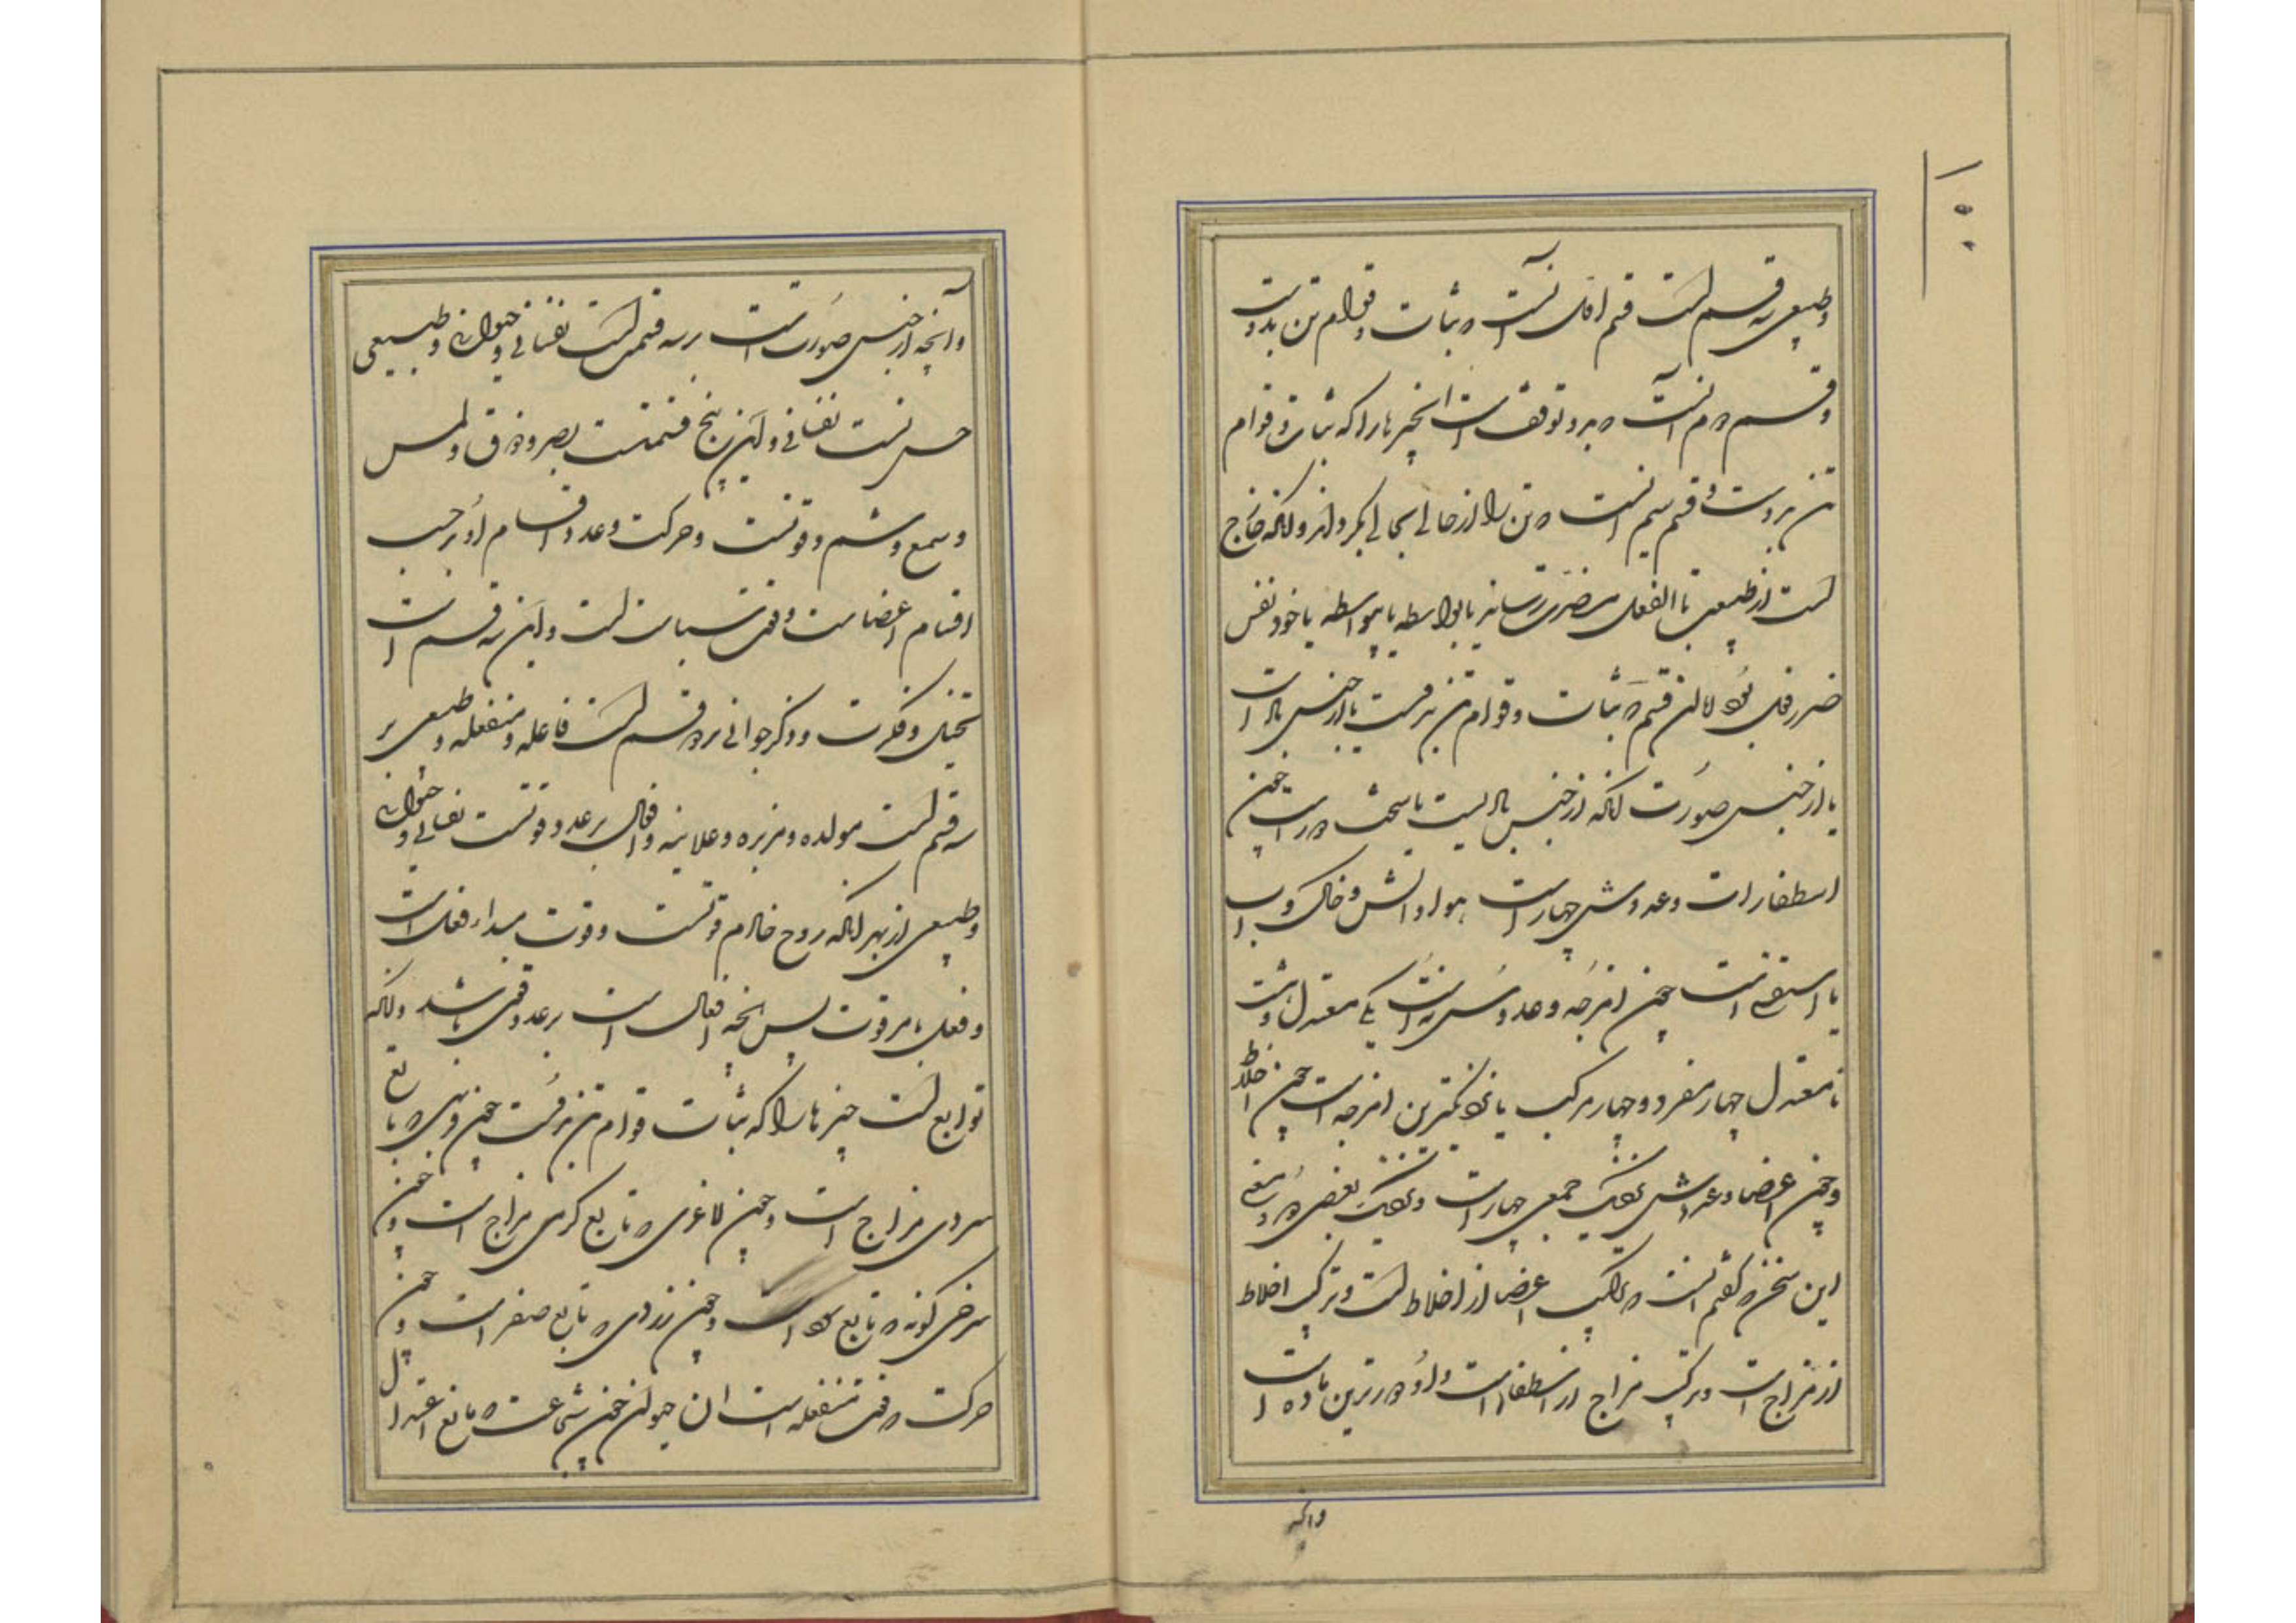 وطبیعی سه قسم است قسم اول آنست که ثبات و قوام تن بدوست
وقسم دوم آنست که برو توقفست آن چیزها را که ثبات و قوام
تن بروست و قسم سیم آنست که تن را از حالی بحالی بگرداند و آنکه خارج
است از طبیعی یا بالفعل مضرت رساند یا بواسطه یا بیواسطه یا خود نفس
ضرر فعل بود اما آن قسم که ثبات و قوام تن برقست یا از جنس ماده است
یا از جنس صورت آنکه از جنس ماده یست یا سخت دورست چون
اسطقسات و عددش چهار است هوا و آتش و خاک و آب
یا است چون امزجه و عددش نه است یکی معتدل و هشت
نامعتدل چهار مفرد و چهار مرکب یا نزدیکترین امزجه است چون اخلاط
وچون اعضا و عددش نزدیک جمعی چهار است و نزدیک بعضی
این سخن که گفتم آنست که ترکیب اعضا از اخلاط است و ترکیب اخلاط
از مزاج است و ترکیب مزاج از اسطقسات است و او دورترین ماده است
وآنچه
وآنچه از جنس صورت است بر سه قسمست نفسانی و حیوانی و طبیعی
حس است نفسانی و این پنج قسمست بصر و ذوق و لمس
وسمع و شم و قوتست و حرکت و عدد اقسام او بر حسب
اقسام اعضاست و قوت سیاست است و این سه قسم است
تخیل و فکرت و ذکر حیوانی بر دو قسم است فاعله و منفعله و طبیعی بر
سه قسم است مولده و مربیه و غاذیه و افعال بر عدد قوتست نفسانی و حیوانی
وطبیعی از بهر آنکه روح خادم قوتست و قوت مبداء فعل است
وفعل باثر قوت پس آنچه افعال است بر عدد قوی باشد و آنکه
توابع است چیزها را که ثبات و قوام تن برقست چون فربهی که تابع
سردی مزاج است و چون لاغری که تابع گرمی مزاج است و چون
سرخی گونه که تابع است و چون زردی که تابع صفر است و چون
حرکت که قوت منفعله است آن حیوان چون شجاعت که تابع اعتدال